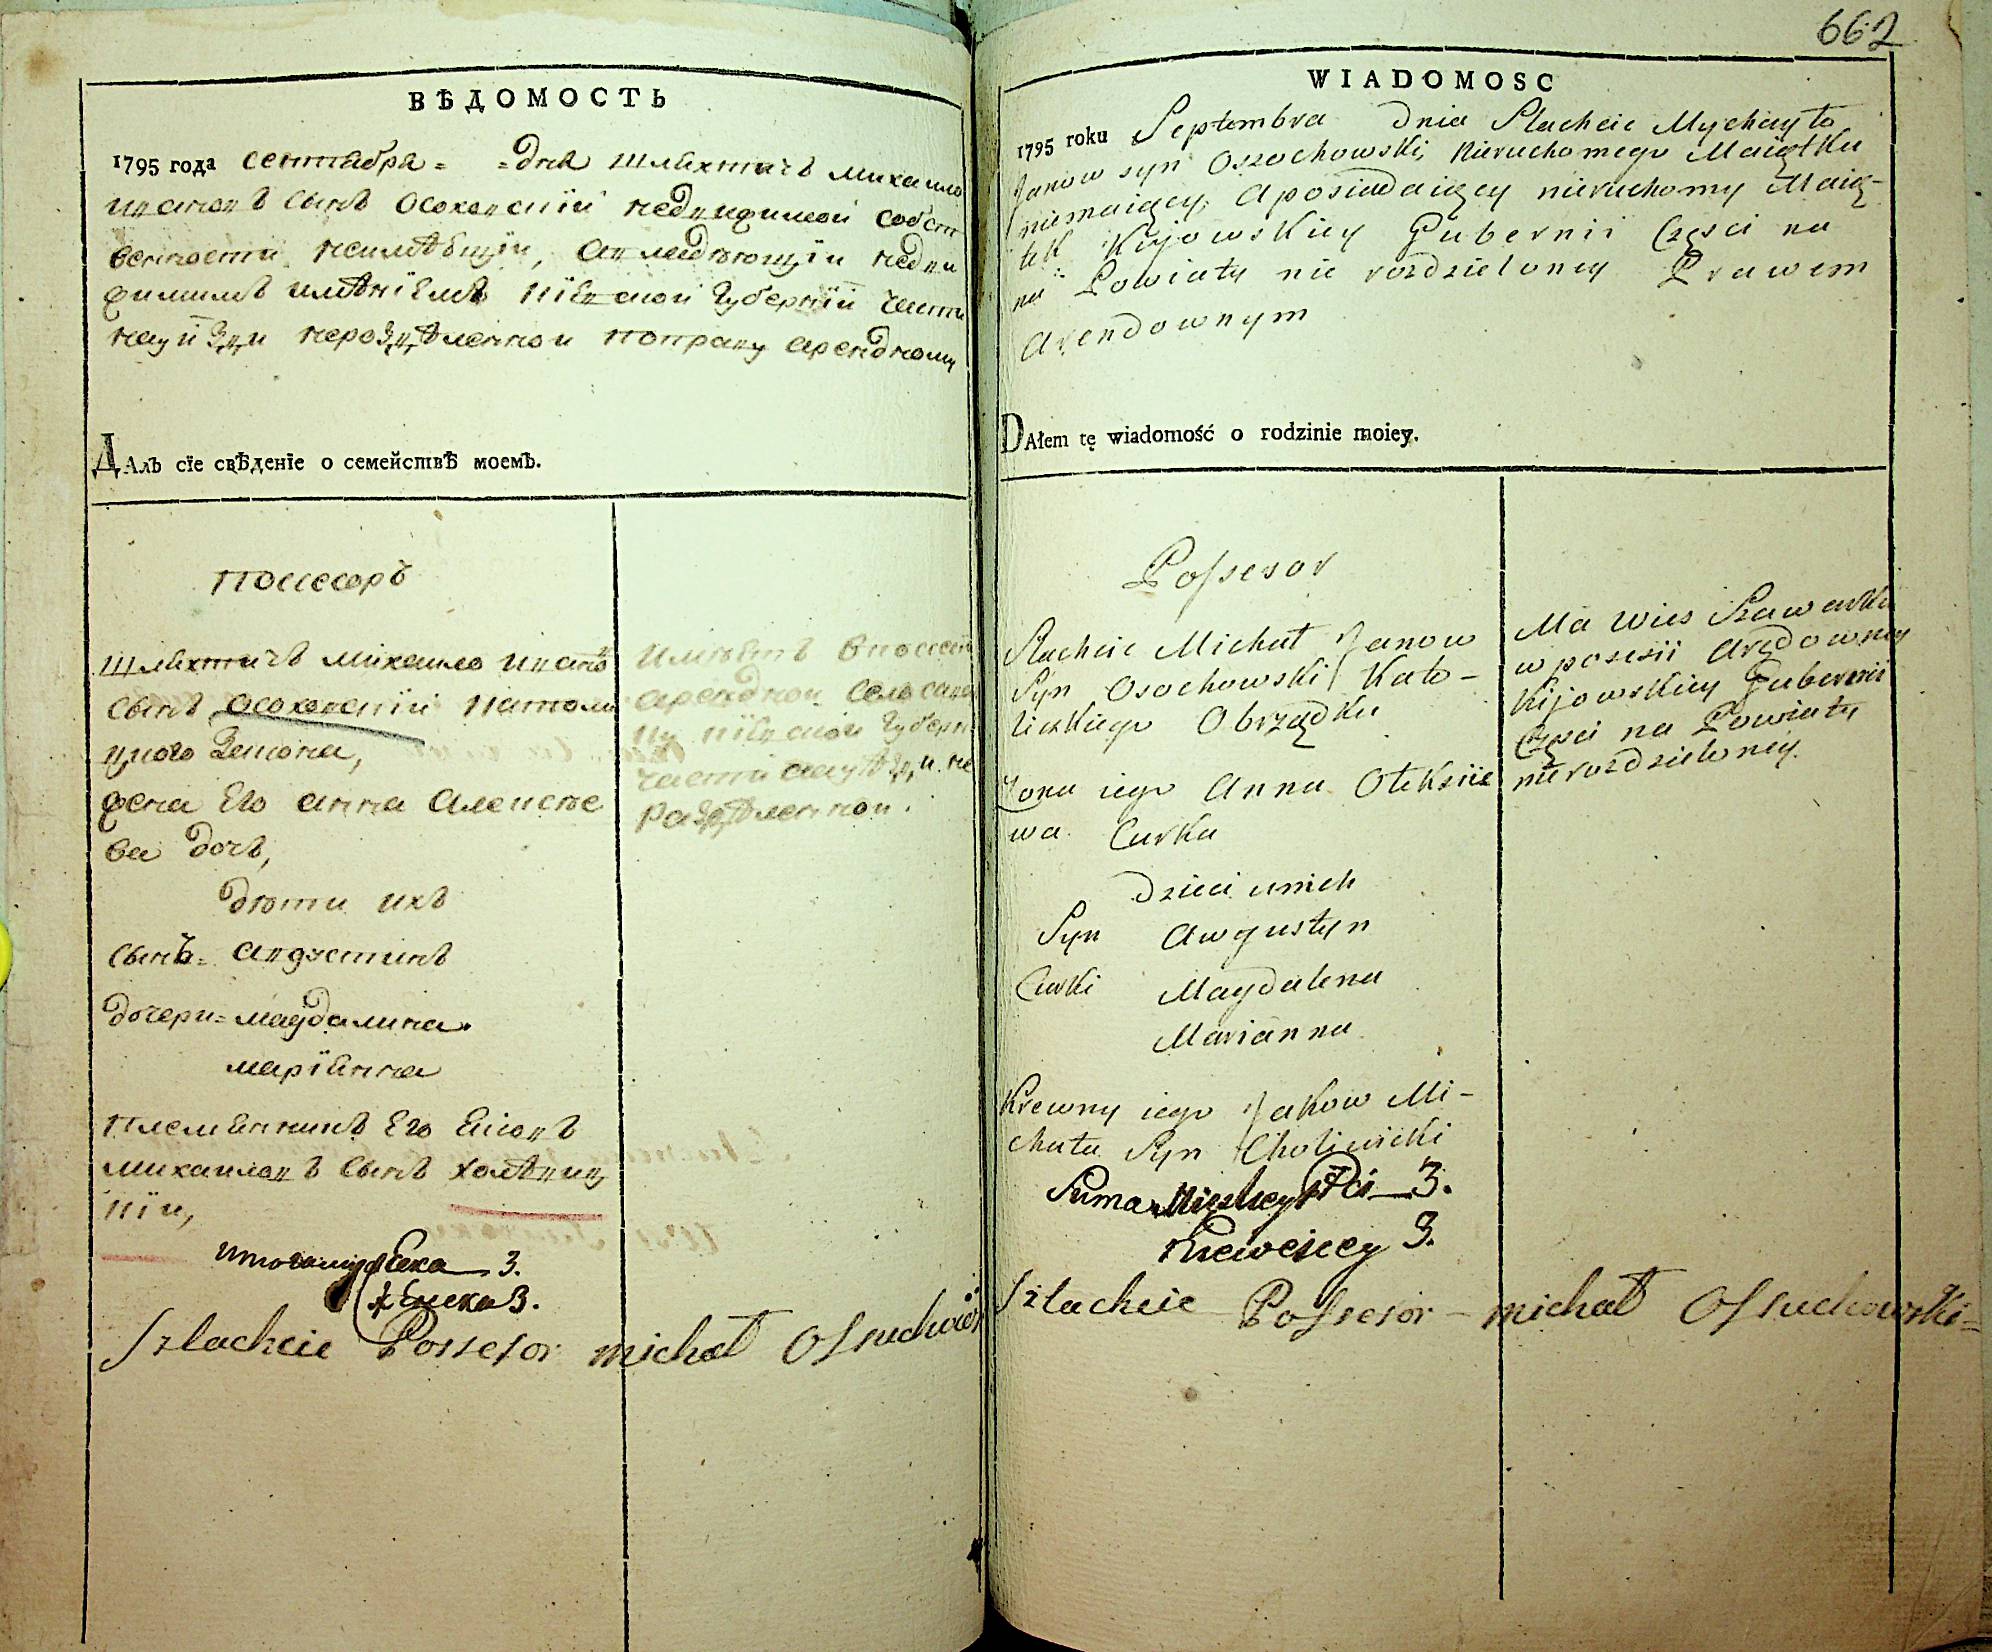 ВѢДОМОСТЬ
1795 года сентября = = дня шляхтичъ михаило
ивановъ сынъ осоховский недвижимой собст
венности неимѣющіи, авладѣющіи недви
жимимъ имѣніемъ кіевской губерніи части
науѣзди нероздѣленной поправу арендному
ДАлъ сїе свѣденїе о семействѣ моемъ.
поссесоръ
шляхтичъ михаило ивановъ
сынъ осоховскій католи
цкого закона,
жена Его анна алексѣе
ва дочъ,
дѣти ихъ
сынъ = августинъ
дочери = магдалина
маріянна
племянникъ Его яковъ
михаиловъ сынъ холѣвиц
кіи,
итого мужеска 3.
женска 3.
имѣетъ впосесіи
арендной село
кіевской губерніи
части науѣзди не
раздѣленной.
Szlachcic Possesor michał Ossuchowski
662
WIADOMOSC
1795 roku Septembra dnia Slachcic Mychayło
Janow syn Oszochowski, Nieruchomego Maiątku
niemaiący, aposiadaiący nieruchomy Maią-
tek Kijowskiey Gubernii Częsci na
na Powiaty nie rozdzieloney Prawem
arendownym
DAłem tę wiadomość o rodzinie moiey.
Possesor
Slachcic Michał Janow
Syn Osochowski Kato-
lickiego Obrządku
Zona iego Anna Oleksiie
wa Curka
dzieci unich
Syn Awgustyn
Curki Magdalena
Marianna
Krewny iego Jakow Mi-
chała Syn Choliwicki
Suma Męskey Płci 3.
Niewescey 3.
Ma wies Szawarku
w posesii Arędowney
Kijowskiey Gubernii
Częsci na Powiaty
nierozdzieloney.
Szlachcic Possesor - michał Ossuchowski -